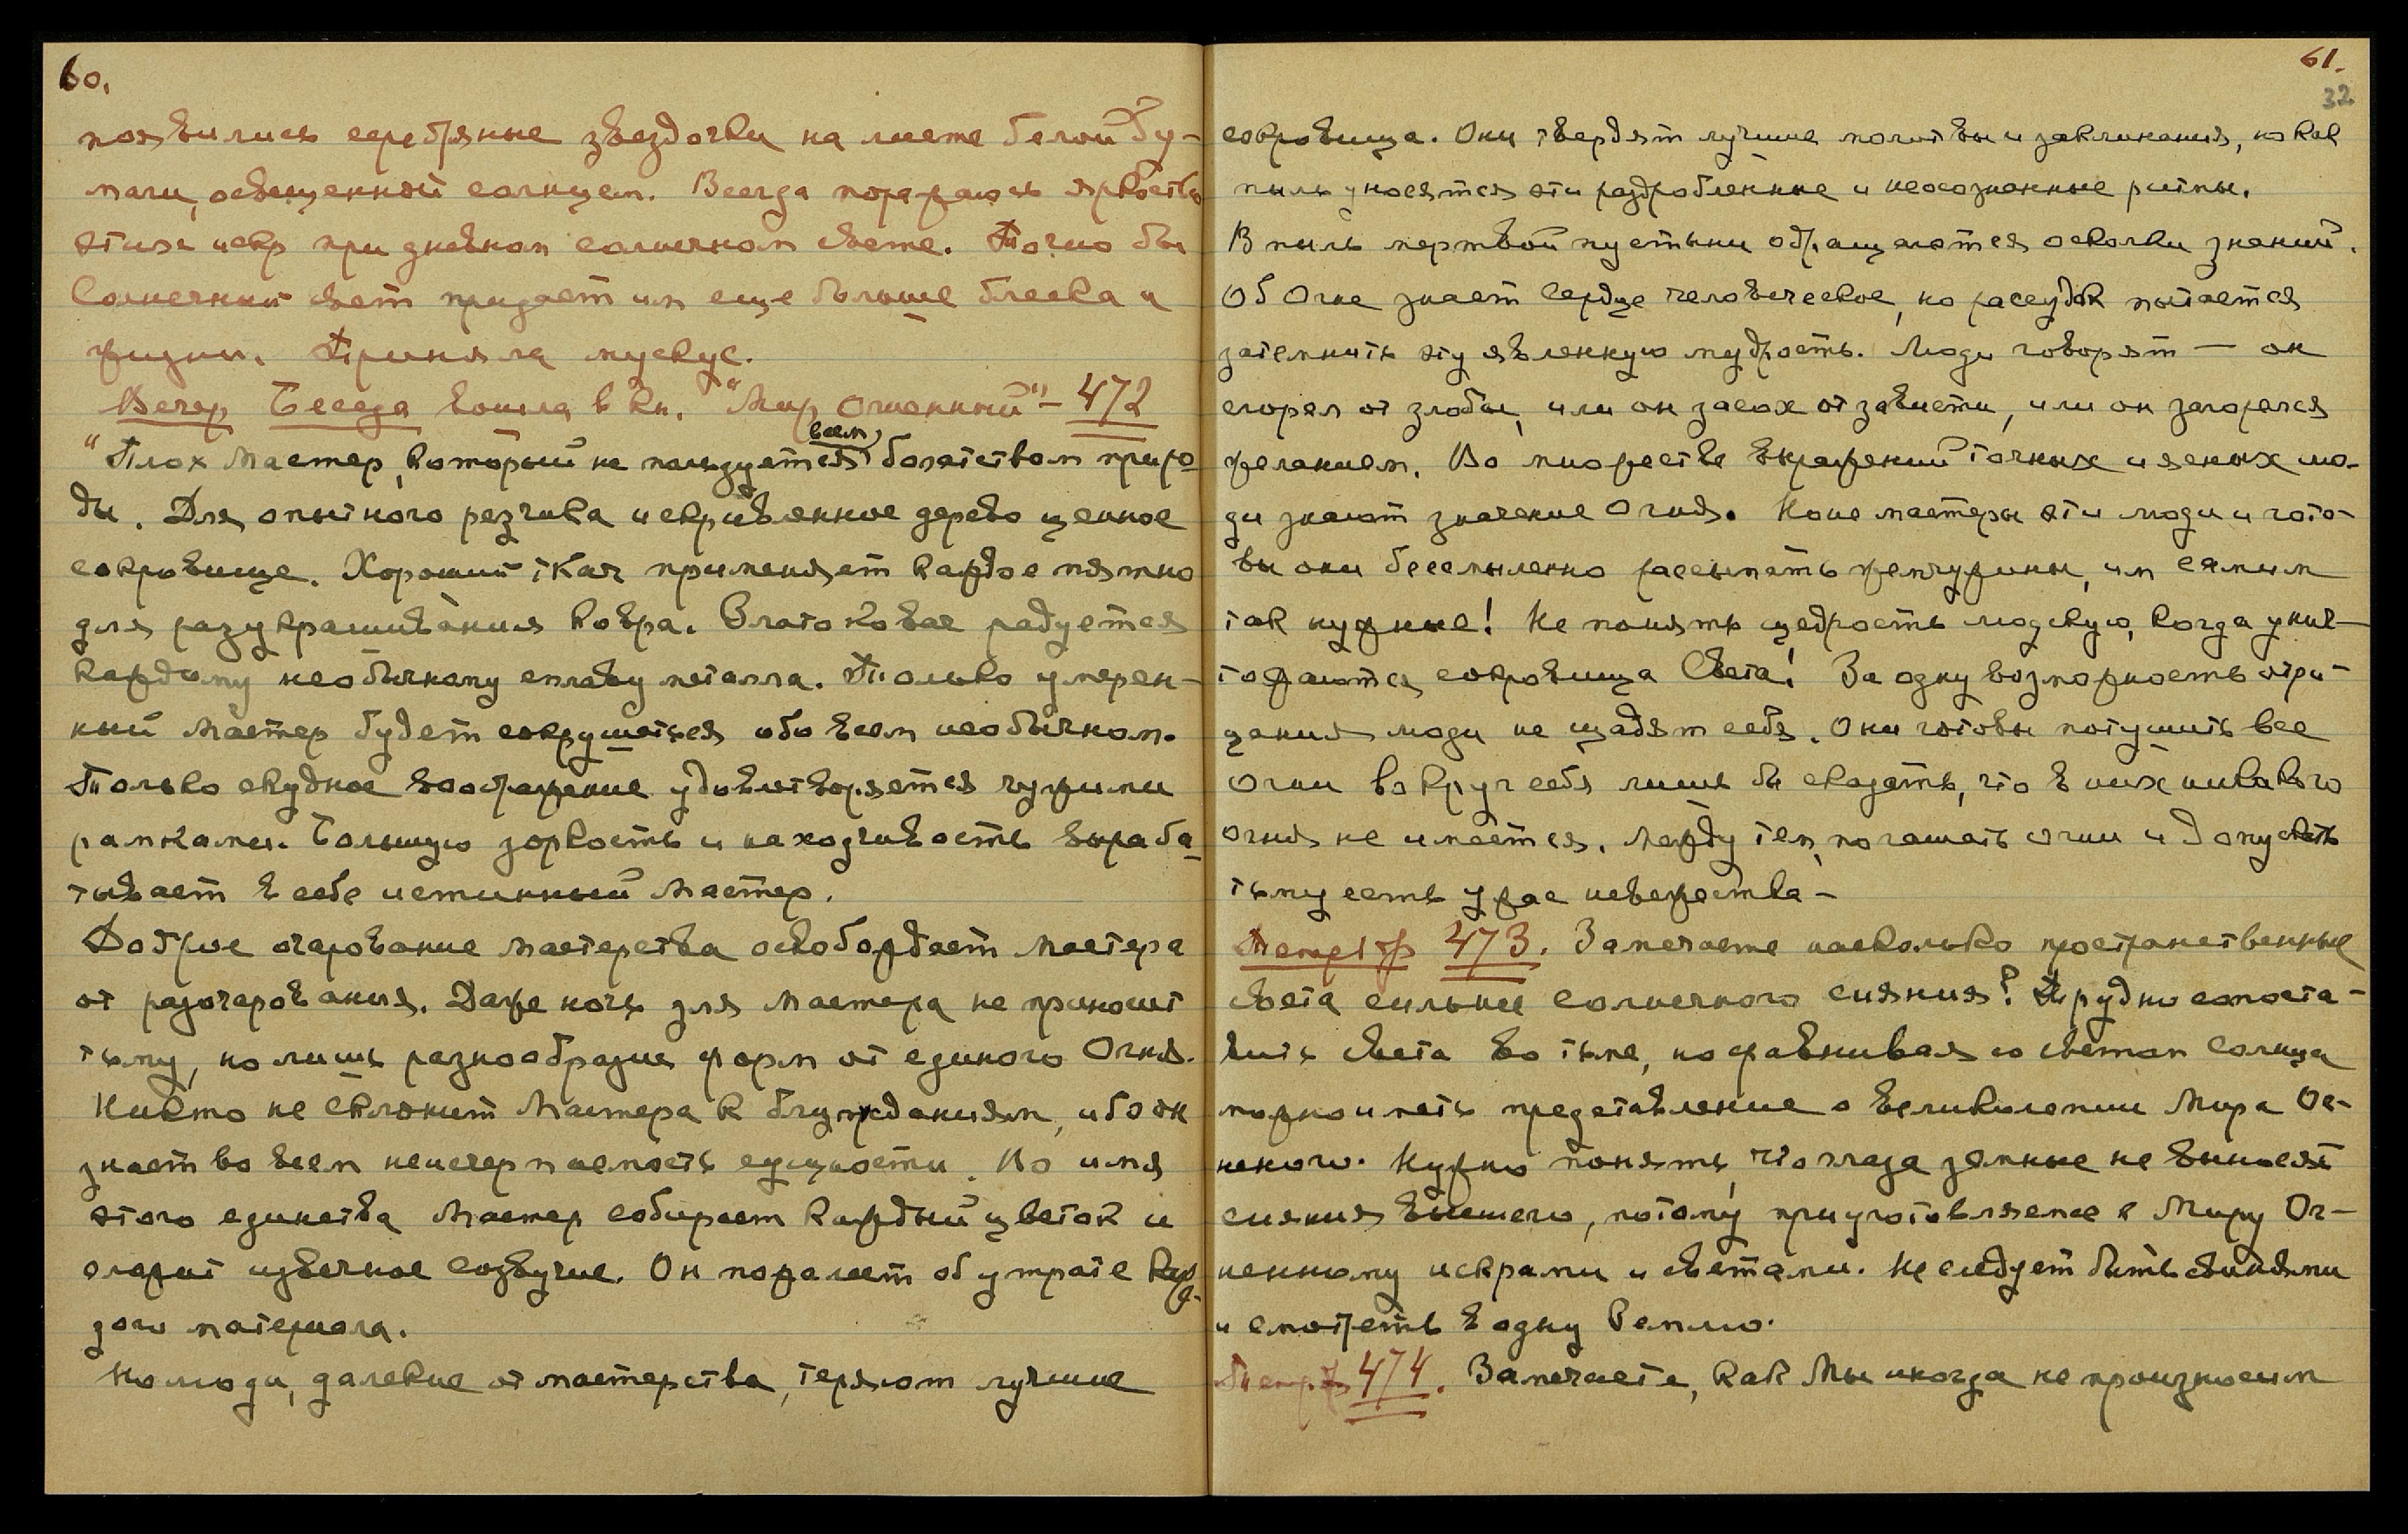 60.
появились серебряные звездочки на листе белой бу-
маги, освещенной солнцем. Всегда поражаюсь яркостью
этих искр при дневном солнечном свете. Точно бы
Солнечный свет придает им еще больше блеска и
жизни. Приняла мускус.
Вечер Беседа вошла в кн. "Мир Огненный" – 472
всем
"Плох Мастер, который не пользуется богатством приро-
ды. Для опытного резчика искривленное дерево ценное
сокровище. Хороший ткач применяет каждое пятно
для разукрашивания ковра. Златоковач радуется
каждому необычному сплаву металла. Только умерен-
ный мастер будет сокрушаться обо всем необычном.
Только скудное воображение удовлетворяется чужими
рамками. Большую зоркость и находчивость выраба-
тывает в себе истинный Мастер.
Доброе очарование мастерства освобождает мастера
от разочарования. Даже ночь для Мастера не приносит
тьму, но лишь разнообразие форм от единого Огня.
Никто не склонит Мастера к блужданиям, ибо он
знает во всем неисчерпаемость сущности. Во имя
этого единства Мастер собирает каждый цветок и
слагает извечное созвучие. Он пожалеет об утрате каж-
дого материала.
Но люди, далекие от мастерства, теряют лучшие
61.
32
сокровища. Они твердят лучшие молитвы и заклинания, но как
пыль уносятся эти раздробленные и неосознанные ритмы.
В пыль мертвой пустыни обращаются осколки знаний.
Об Огне знает сердце человеческое, но рассудок пытается
затемнить эту явленную мудрость. Люди говорят — он
сгорел от злобы, или он засох от зависти, или он загорелся
желанием. Во множестве выражений точных и ясных лю-
ди знают значение Огня. Но не мастеры эти люди и гото-
вы они бессмысленно рассыпать жемчужины, им самим
так нужные! Не понять щедрость людскую, когда унич-
тожаются сокровища Света! За одну возможность отри-
цания люди не щадят себя. Они готовы потушить все
огни вокруг себя лишь бы сказать, что в них никакого
огня не имеется. Между тем, погашать огни и допускать
тьму есть ужас невежества –
473. Замечаете насколько пространственные
света сильны солнечного сияния? Трудно сопоста-
вить света во тьме, но сравнивая со светом солнца
можно иметь представление о великолепии Мира Ог-
ненного. Нужно понять, что глаза земные не выносят
сияния Высшего, потому приуготовляемся к Миру Ог-
ненному искрами и светами. Не следует быть свиньями
и смотреть в одну Землю.
474. Замечаете, как Мы иногда не произносим